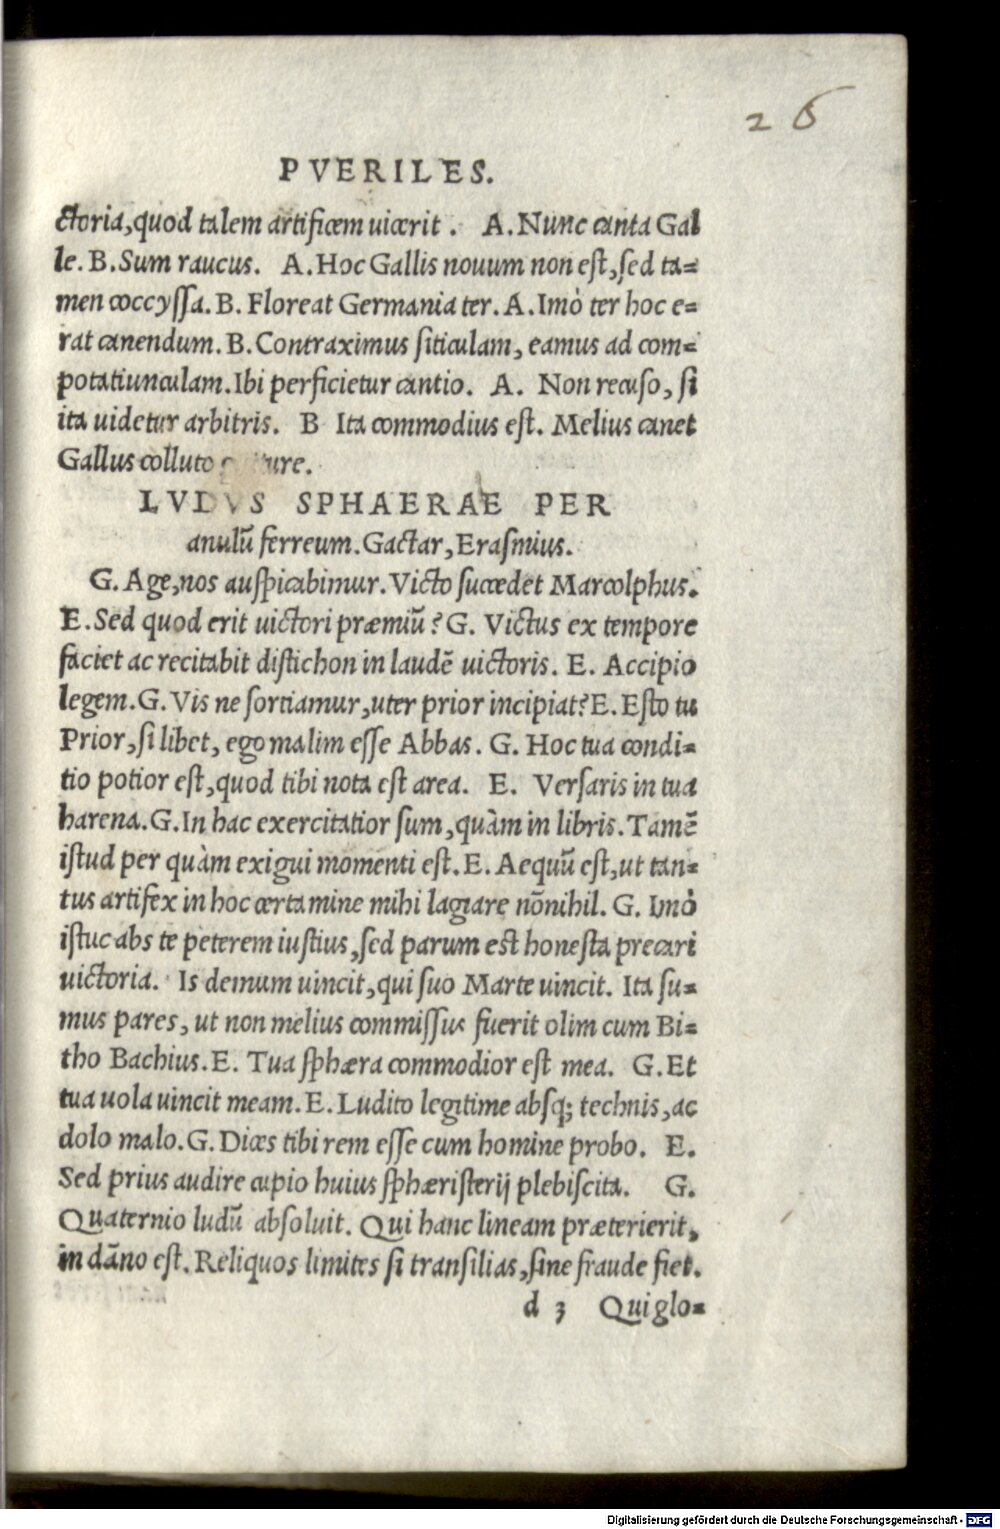 26
PVERILES.
ctoria, quod talem artificem uicerit . A. Nunc canta Gal
le. B. Sum raucus. A. Hoc Gallis nouum non est, sed ta=
men coccyssa. B. Floreat Germania ter. A. Imò ter hoc e=
rat canendum. B. Contraximus siticulam, eamus ad com=
potatiunculam. Ibi perficietur cantio. A. Non recuso, si
ita uidetur arbitris. B Ita commodius est. Melius canet
Gallus colluto
LVDVS SPHAERAE PER
anulũ ferreum. Gactar, Erasmius.
G. Age, nos auspicabimur. Victo succedet Marcolphus.
E. Sed quod erit uictori præmiũ? G. Victus ex tempore
faciet ac recitabit distichon in laudẽ uictoris. E. Accipio
legem. G. Vis ne sortiamur, uter prior incipiat? E. Esto tu
Prior, si libet, ego malim esse Abbas. G. Hoc tua condi=
tio potior est, quod tibi nota est area. E. Versaris in tua
harena. G. In hac exercitatior sum, quàm in libris. Tamẽ
istud per quàm exigui momenti est. E. Aequũ est, ut tan=
tus artifex in hoc certamine mihi lagiare nõnihil. G. Imò
istuc abs te peterem iustius, sed parum est honesta precari
uictoria. Is demum uincit, qui suo Marte uincit. Ita su=
mus pares, ut non melius commissus fuerit olim cum Bi=
tho Bachius. E. Tua sphæra commodior est mea. G. Et
tua uola uincit meam. E. Ludito legitime absq; technis, ac
dolo malo. G. Dices tibi rem esse cum homine probo. E.
Sed prius audire cupio huius sphæristerij plebiscita. G.
Quaternio ludũ absoluit. Qui hanc lineam præterierit,
in dãno est. Reliquos limites si transilias, sine fraude fiet.
d 3 Qui glo=
Digitalisierung gefördert durch die Deutsche Forschungsgemeinschaft - DFG